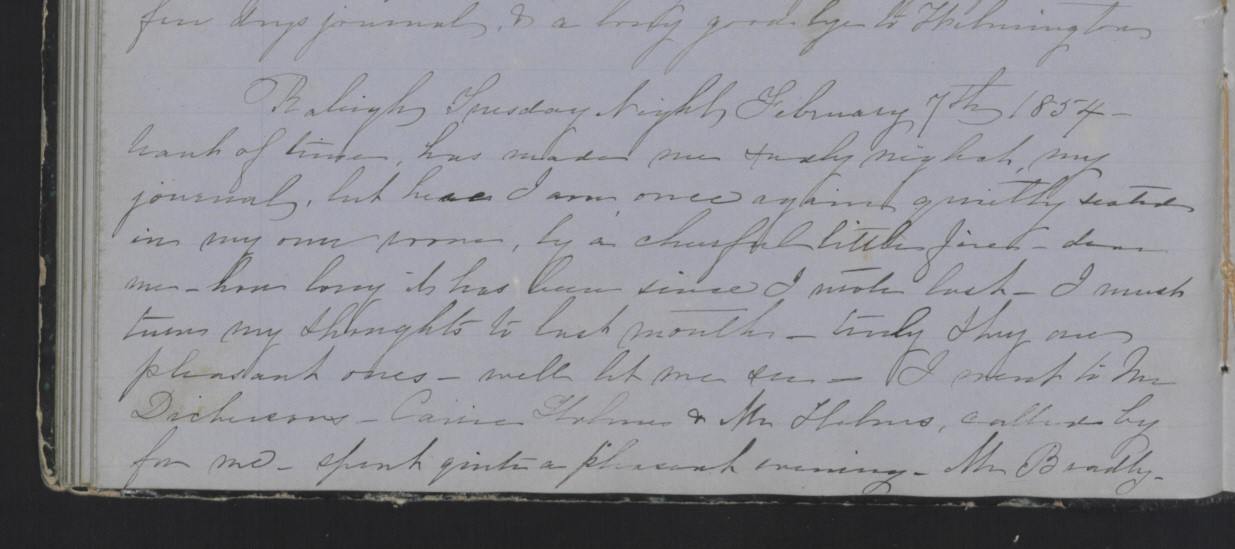 few days journal, & a long good bye to Wilmington
Raleigh Tuesday Night February 7th 1854-
Want of time, has made me sadly neglect, my
journal, but here I am once again quietly seated
in my own room, by a cheerful little fire - dear
me - how long it has been since I wrote last - I must
turn my thoughts to last month - truly they are
pleasant ones - well let me see - I went to Mr
Dickersons - Carrie Holmes & Mr Holmes, called by
for me - spent quite a pleasant evening - Mr Bradly -